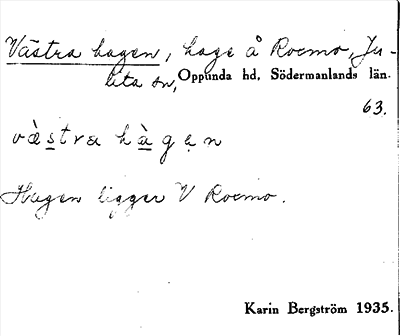 Västra hagen, hage å Rocmo, Ju-
lita sn, Oppunda hd, Södermanlands län.
63.
vä̀stra hàgẹn
Hagen ligger V Rocmo.
Karin Bergström 1935.